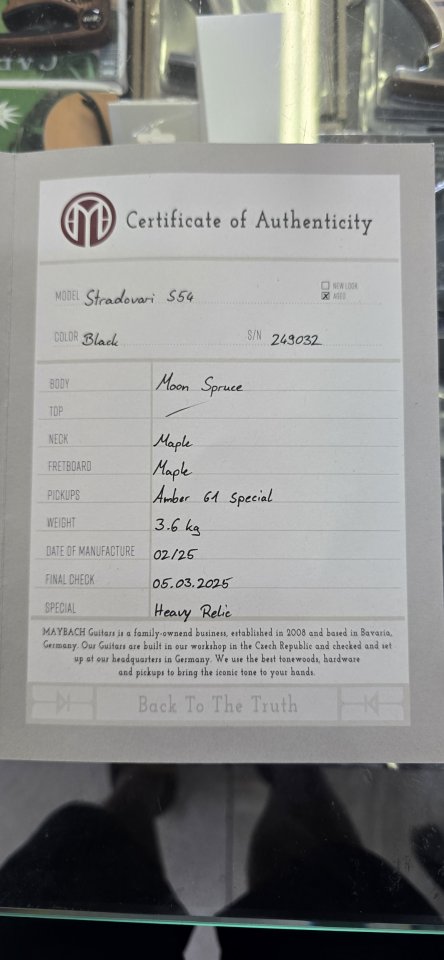 Certificate of Authenticity
MODEL Stradovari S54
NEW LOOK
AGED
COLOR Black S/N 249032
BODY Moon Spruce
TOP
NECK Maple
FRETBOARD Maple
PICKUPS Amber 61 Special
WEIGHT 3.6 kg
DATE OF MANUFACTURE 02/25
FINAL CHECK 05.03.2025
SPECIAL Heavy Relic
MAYBACH Guitars is a family-ownend business, established in 2008 and based in Bavaria,
Germany. Our Guitars are built in our workshop in the Czech Republic and checked and set
up at our headquarters in Germany. We use the best tonewoods, hardware
and pickups to bring the iconic tone to your hands.
Back To The Truth